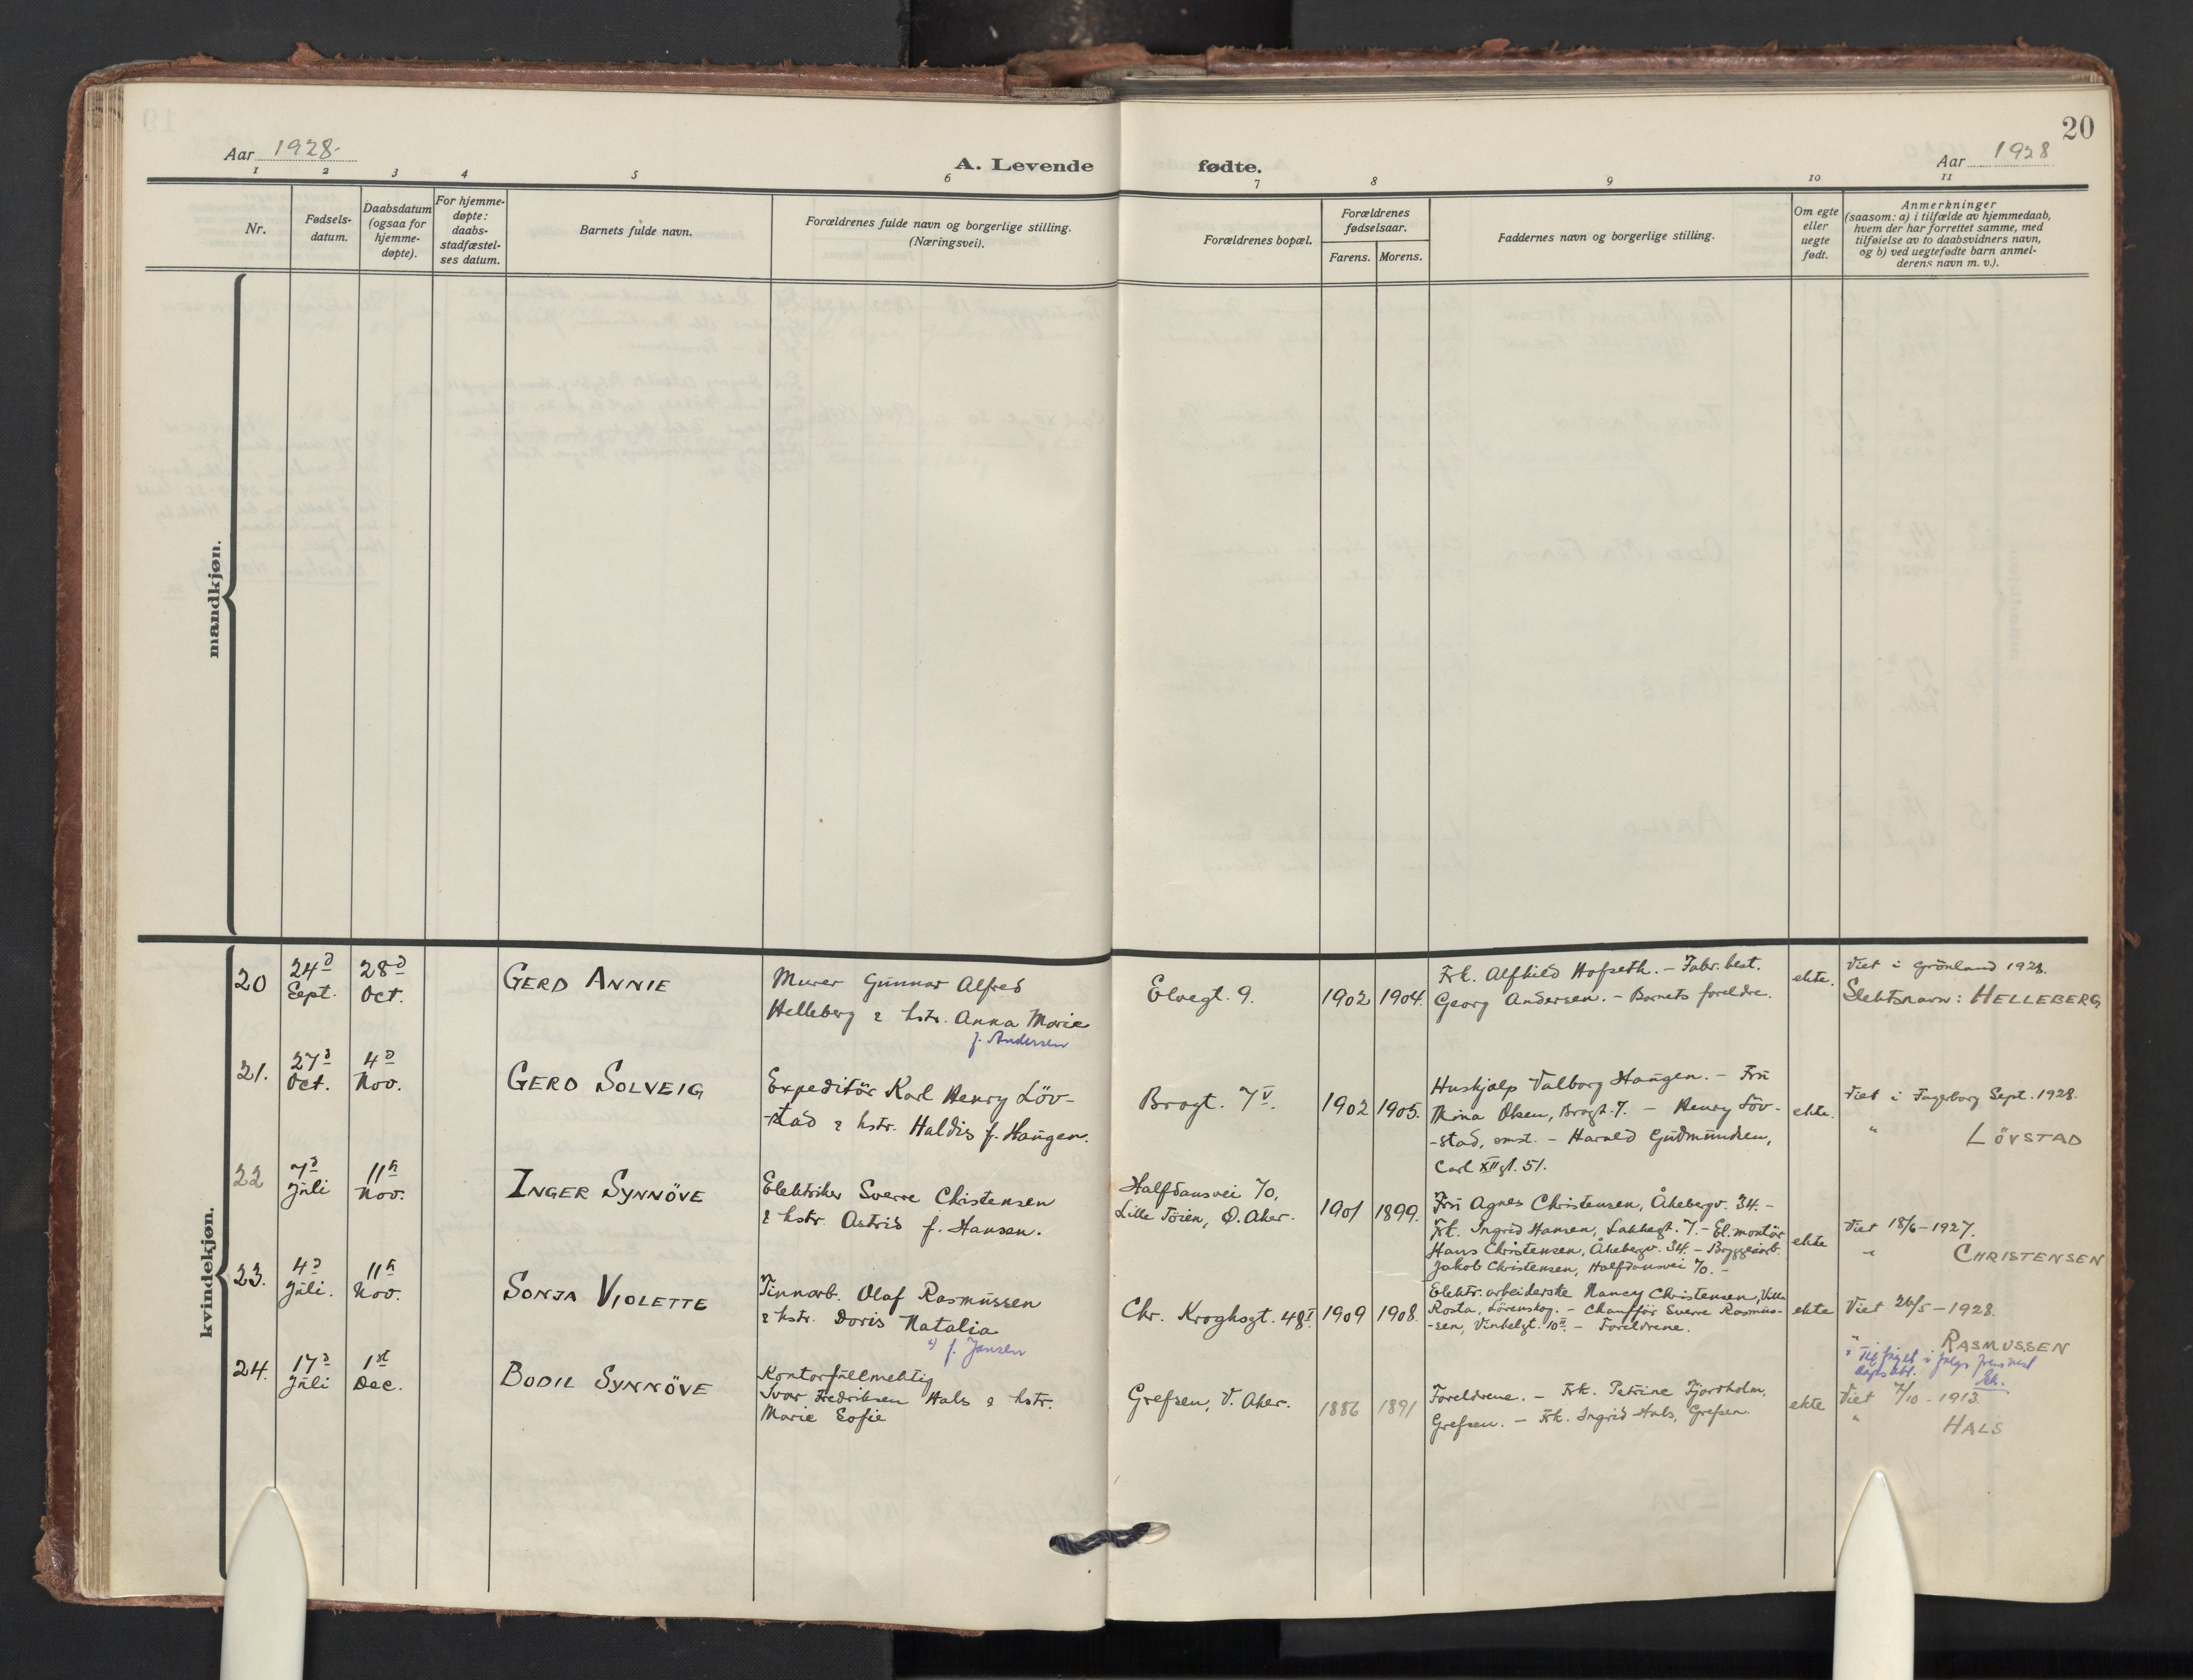 20
Aar 1928.
A. Levende fødte.
Aar 1928
1 2 3 4 5 6 7 8 9 10 11
Nr.
Fødsels-
datum.
Daabsdatum
(ogsaa for
hjemme-
døpte).
For hjemme-
døpte:
daabs-
stadfæstel-
ses datum.
Barnets fulde navn.
Forældrenes fulde navn og borgerlige stilling.
(Næringsvei).
Forældrenes bopæl.
Forældrenes
fødselsaar.
Farens. Morens.
Faddernes navn og borgerlige stilling.
Om egte
eller
uegte
født.
Anmerkninger
(saasom: a) i tilfælde av hjemmedaab,
hvem der har forrettet samme, med
tilføielse av to daabsvidners navn,
og b) ved uegtefødte barn anmel-
derens navn m. v.).
mandkjøn.
kvindekjøn.
20
24d
Sept.
28d
Oct.
GERD ANNIE
Murer Gunnar Alfred
Helleberg & hstr. Anna Marie
f. Andersen
Elvegt. 9.
1902
1904.
Frk. Alfhild Hofseth. - Fabr. best.
Georg Andersen. - Barnets foreldre.
ekte.
Viet i Grönland 1928.
Slektsnavn: HELLEBERG
21.
27d
Oct.
4d
Nov.
GERD SOLVEIG
Expeditör Karl Henry Löv-
-stad & hstr. Haldis f. Haugen.
Brogt. 7V.
1902
1905.
Huskjalp Valborg Haugen. - Fru
Mina Olsen, Brogt. 7. - Henry Löv-
-stad, omst. - Harald Gudmundsen,
Carl XII gt. 51.
ekte.
Viet i Fagerborg Sept. 1928.
" LÖVSTAD
22
7d
Juli
11te
Nov.
INGER SYNNÖVE
Elektriker Sverre Christensen
& hstr. Astrid f. Hansen.
Halfdansvei 70,
Lille Töien, Ö. Aker.
1901
1899.
Fru Agnes Christensen, Åkebergv. 34. -
Frk. Ingrid Hansen, Lakkegt. 7. - El. montör
Hans Christensen, Åkebergv. 34. - Bryggeiarb.
Jakob Christensen, Halfdansvei 70. -
ekte
Viet 18/6 - 1927.
" CHRISTENSEN
23.
4d
Juli.
11te
Nov.
SONJA VIOLETTE
Tinnarb. Olaf Rasmussen
& hstr. Doris Natalia
f. Jansen
Chr. Kroghsgt. 48I.
1909
1908.
Elektr. arbeiderske Nancy Christensen, Villa
Rosta, Lörenskog. - Chaufför Sverre Rasmus-
-sen, Vinkelgt. 10II. - Foreldrene.
ekte
Viet 26/5 - 1928.
" RASMUSSEN
24.
17d
Juli
1st
Dec.
BODIL SYNNÖVE
Kontorfullmektig
Ivar Fredriksen Hals & hstr.
Marie Sofie
Grefsen, V. Aker.
1886
1891
Foreldrene. - Frk. Petrine Fjortholm,
Grefsen. - Frk. Ingrid Hals, Grefsen.
ekte
Viet 7/10 - 1913.
" HALS